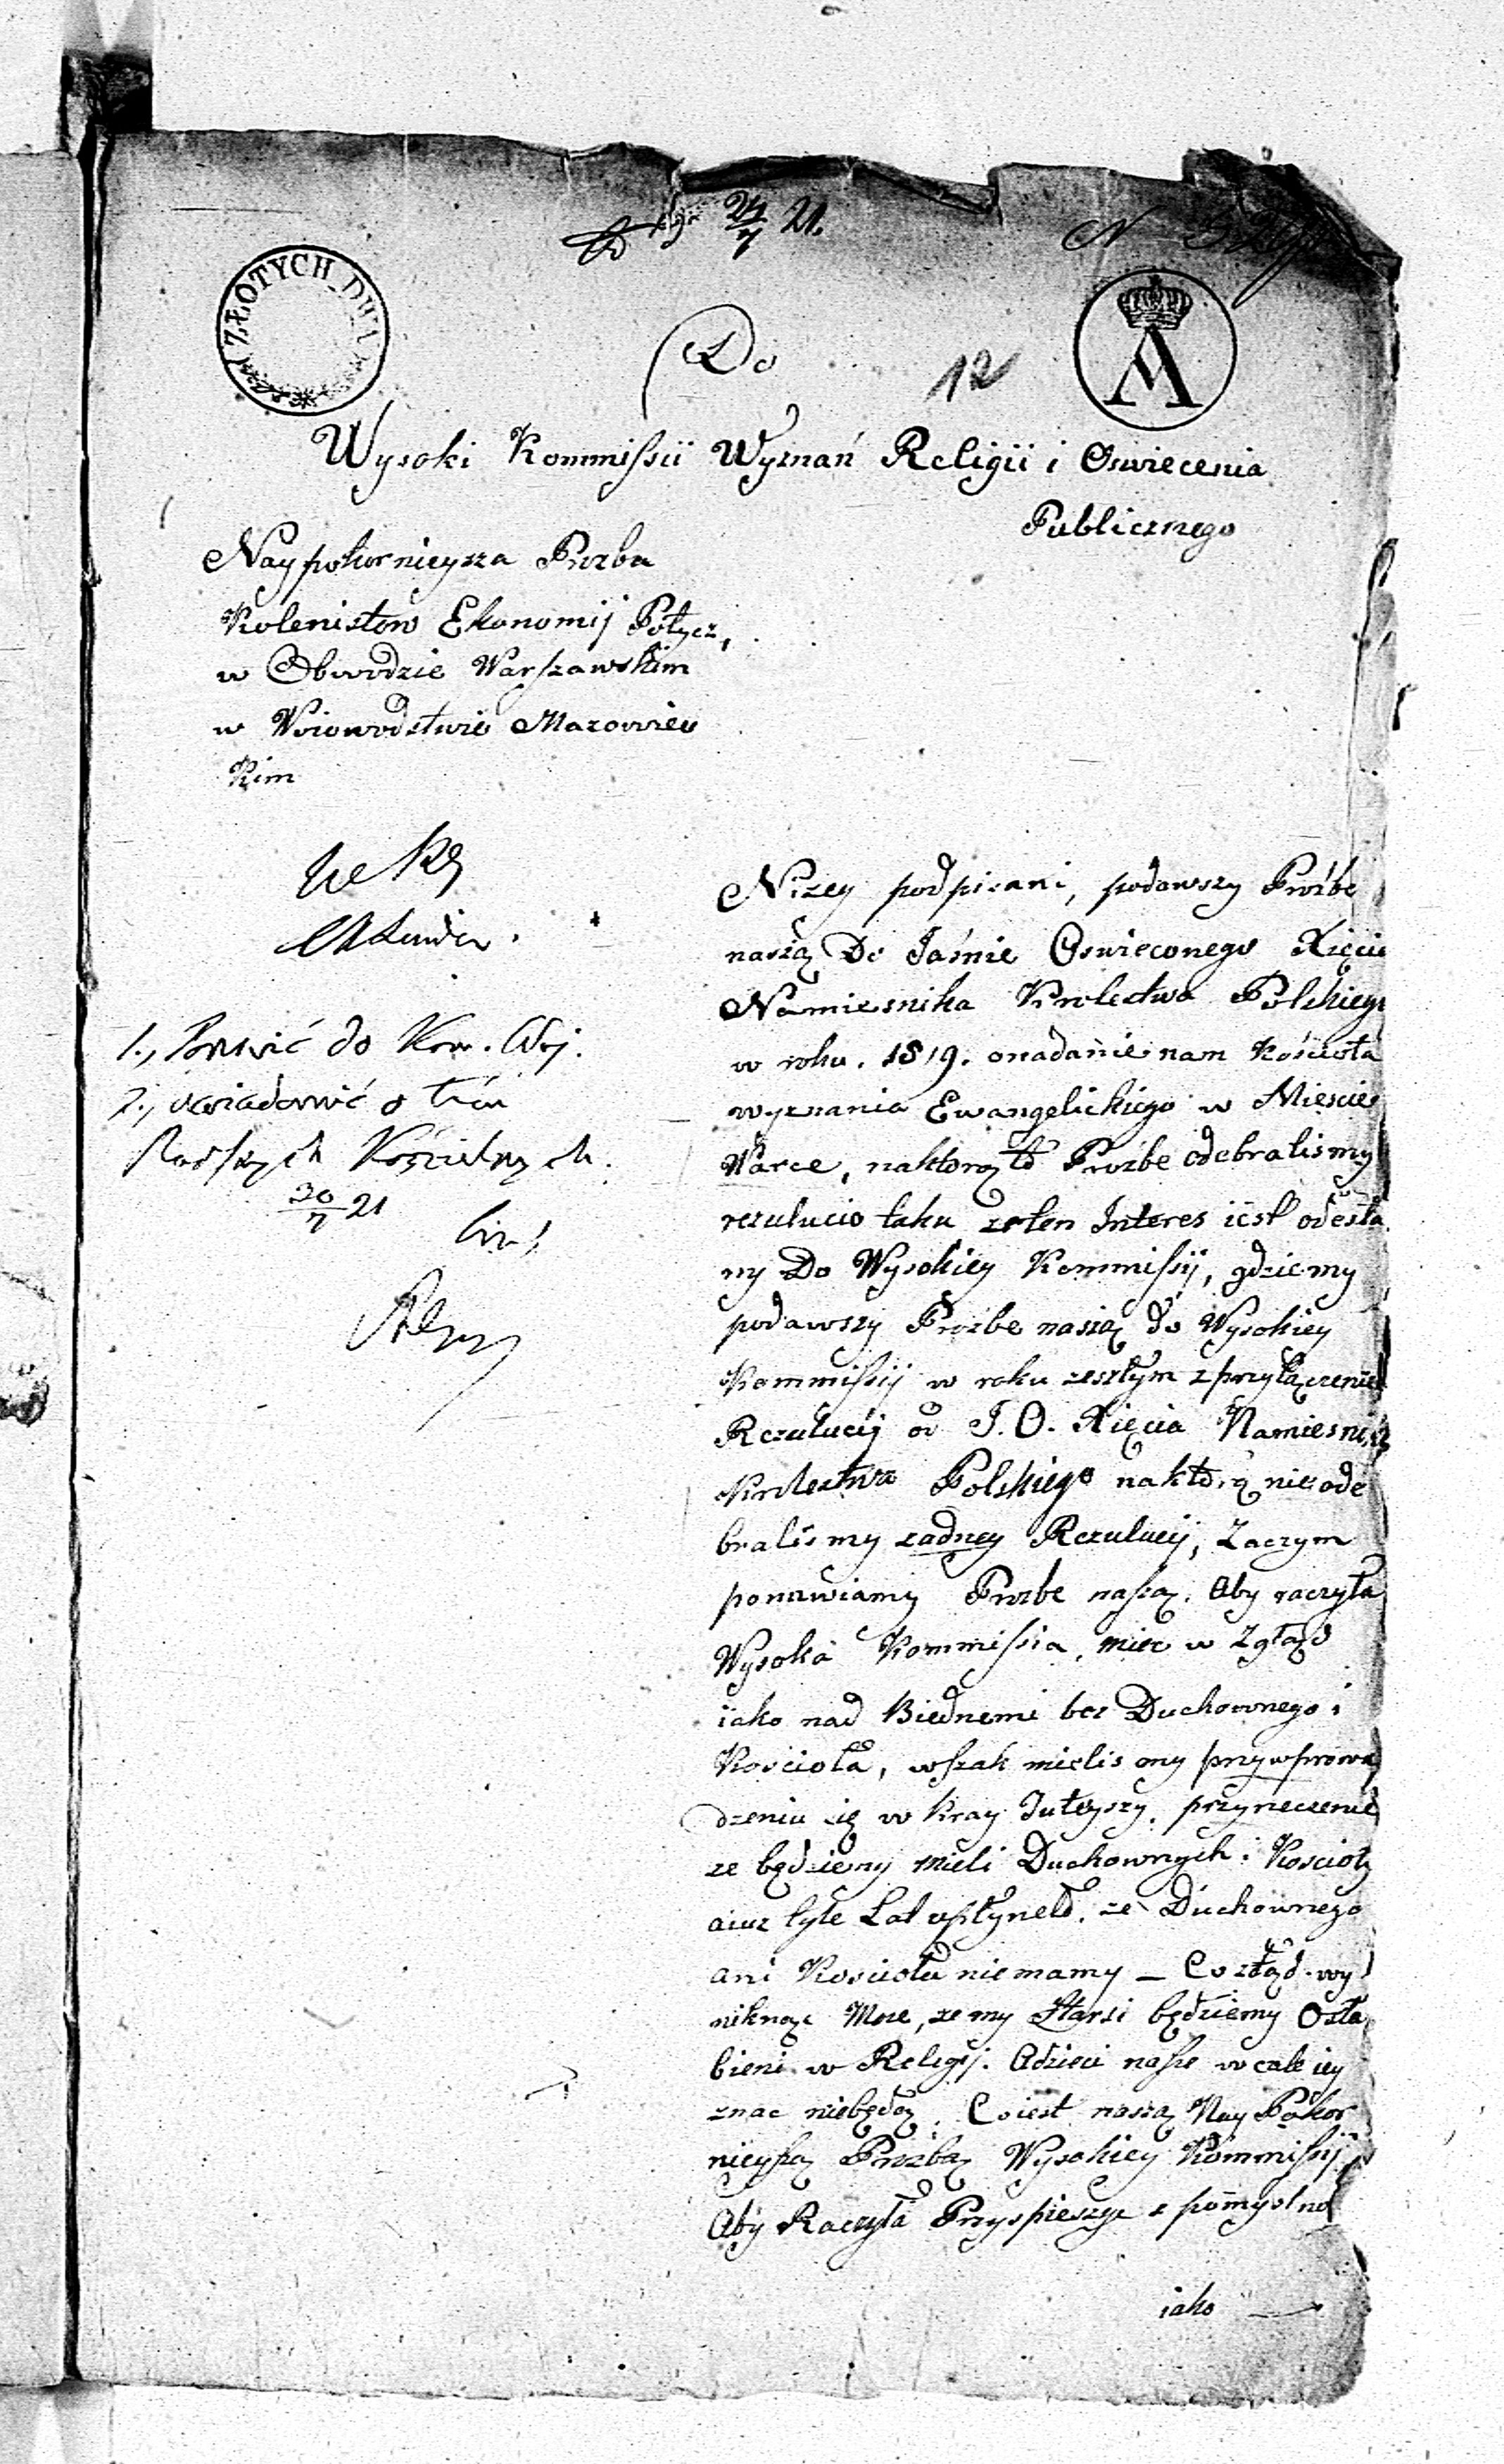 24/7 21.
N
ZŁOTYCH DWA
A
12
Do
Wysoki Kommissii Wyznań Religii i Oswiecenia
Publicznego
Naypokornieysza Prozba
Kolenistow Ekonomij Potycz,
w Obwodzie Warszawskim
w Woiewodztwie Mazowiec
kim
do Kom. Woj.
2., uwiadomić o tém
Kościelnych.
20/7 21
Nizey podpisani, podawszy Proźbe
naszą Do Jaśnie Oswieconego Xięcia
Namiesnika Krolestwa Polskiego
w roku. 1819. onadanie nam Kościoła
wyznania Ewangelickiego w Miescie
Warce, naktorą to Prozbe odebralismy
rezulucio taku zeten Interes iest odesła
ny Do Wysokiey Kommissij, gdziemy
podawszy Prozbe naszą do Wysokiey
Kommissij w roku zeszłym z przyłączenie
Rezulucij od J. O. Xięcia Namiesnika
Krolestwa Polskiego naktórą nieode
bralismy zadney Rezulucij, Zaczym
ponawiamy Prozbe naszą. Aby raczyła
Wysoka Kommissia, miec w Zgłąd
iako nad Biednemi bez Duchownego i
Kościoła, wszak mielismy przywprowa
dzeniu się w Kray Tuteyszy. przyrzeczenie
ze będziemy mieli Duchownych i Kościoły
aiuz tyle Lat upłyneło, ze Duchownego
ani Kościoła niemamy – Co ztąd wy
niknąc Moze, ze my Starsi będziemy Osła
bieni w Religij. Adzieci nasze wcale iey
znac niebędą. Coiest naszą Nay Pokor
nieyszą Prozbą Wysokiey Kommissij
Aby Raczyła Przyspieszyc z pomyslno
iako